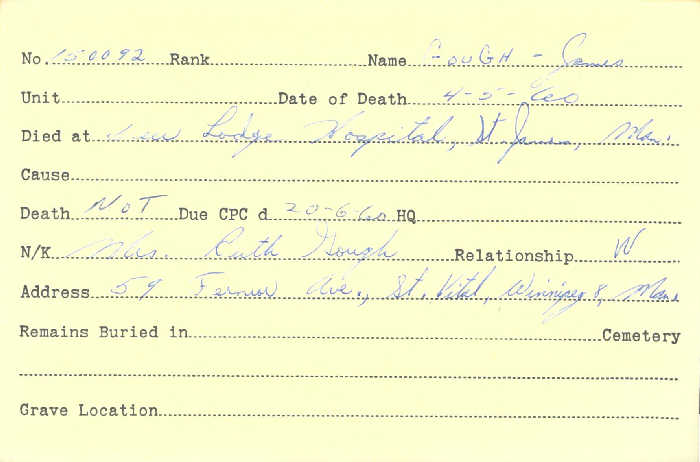 No. 150092 Rank Name GOUGH - James
Unit Date of Death 4-5-60
Died at Deer Lodge Hospital, St. James, Man.
Cause
Death NOT Due CPC d 20-6-60 HQ
N/K Mrs. Ruth Gough Relationship W
Address 59 Ave., St. Vital, Winnipeg 8, Man.
Remains Buried in Cemetery
Grave Location